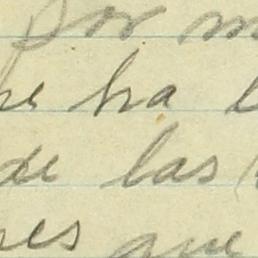 por m
he ha l
de las
res que